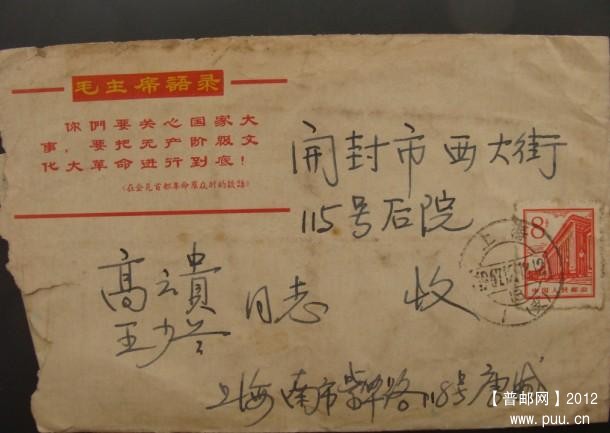 毛主席語录
你們要关心国家大
事，要把无产阶級文
化大革命进行到底！
(在会見首都革命羣众时的談話)
開封市西大街
115号后院
高云貴
王少兰 同志 收
8
上海
中国人民邮政
上海南市 路118号唐
【普邮网】2012
www.puu.cn